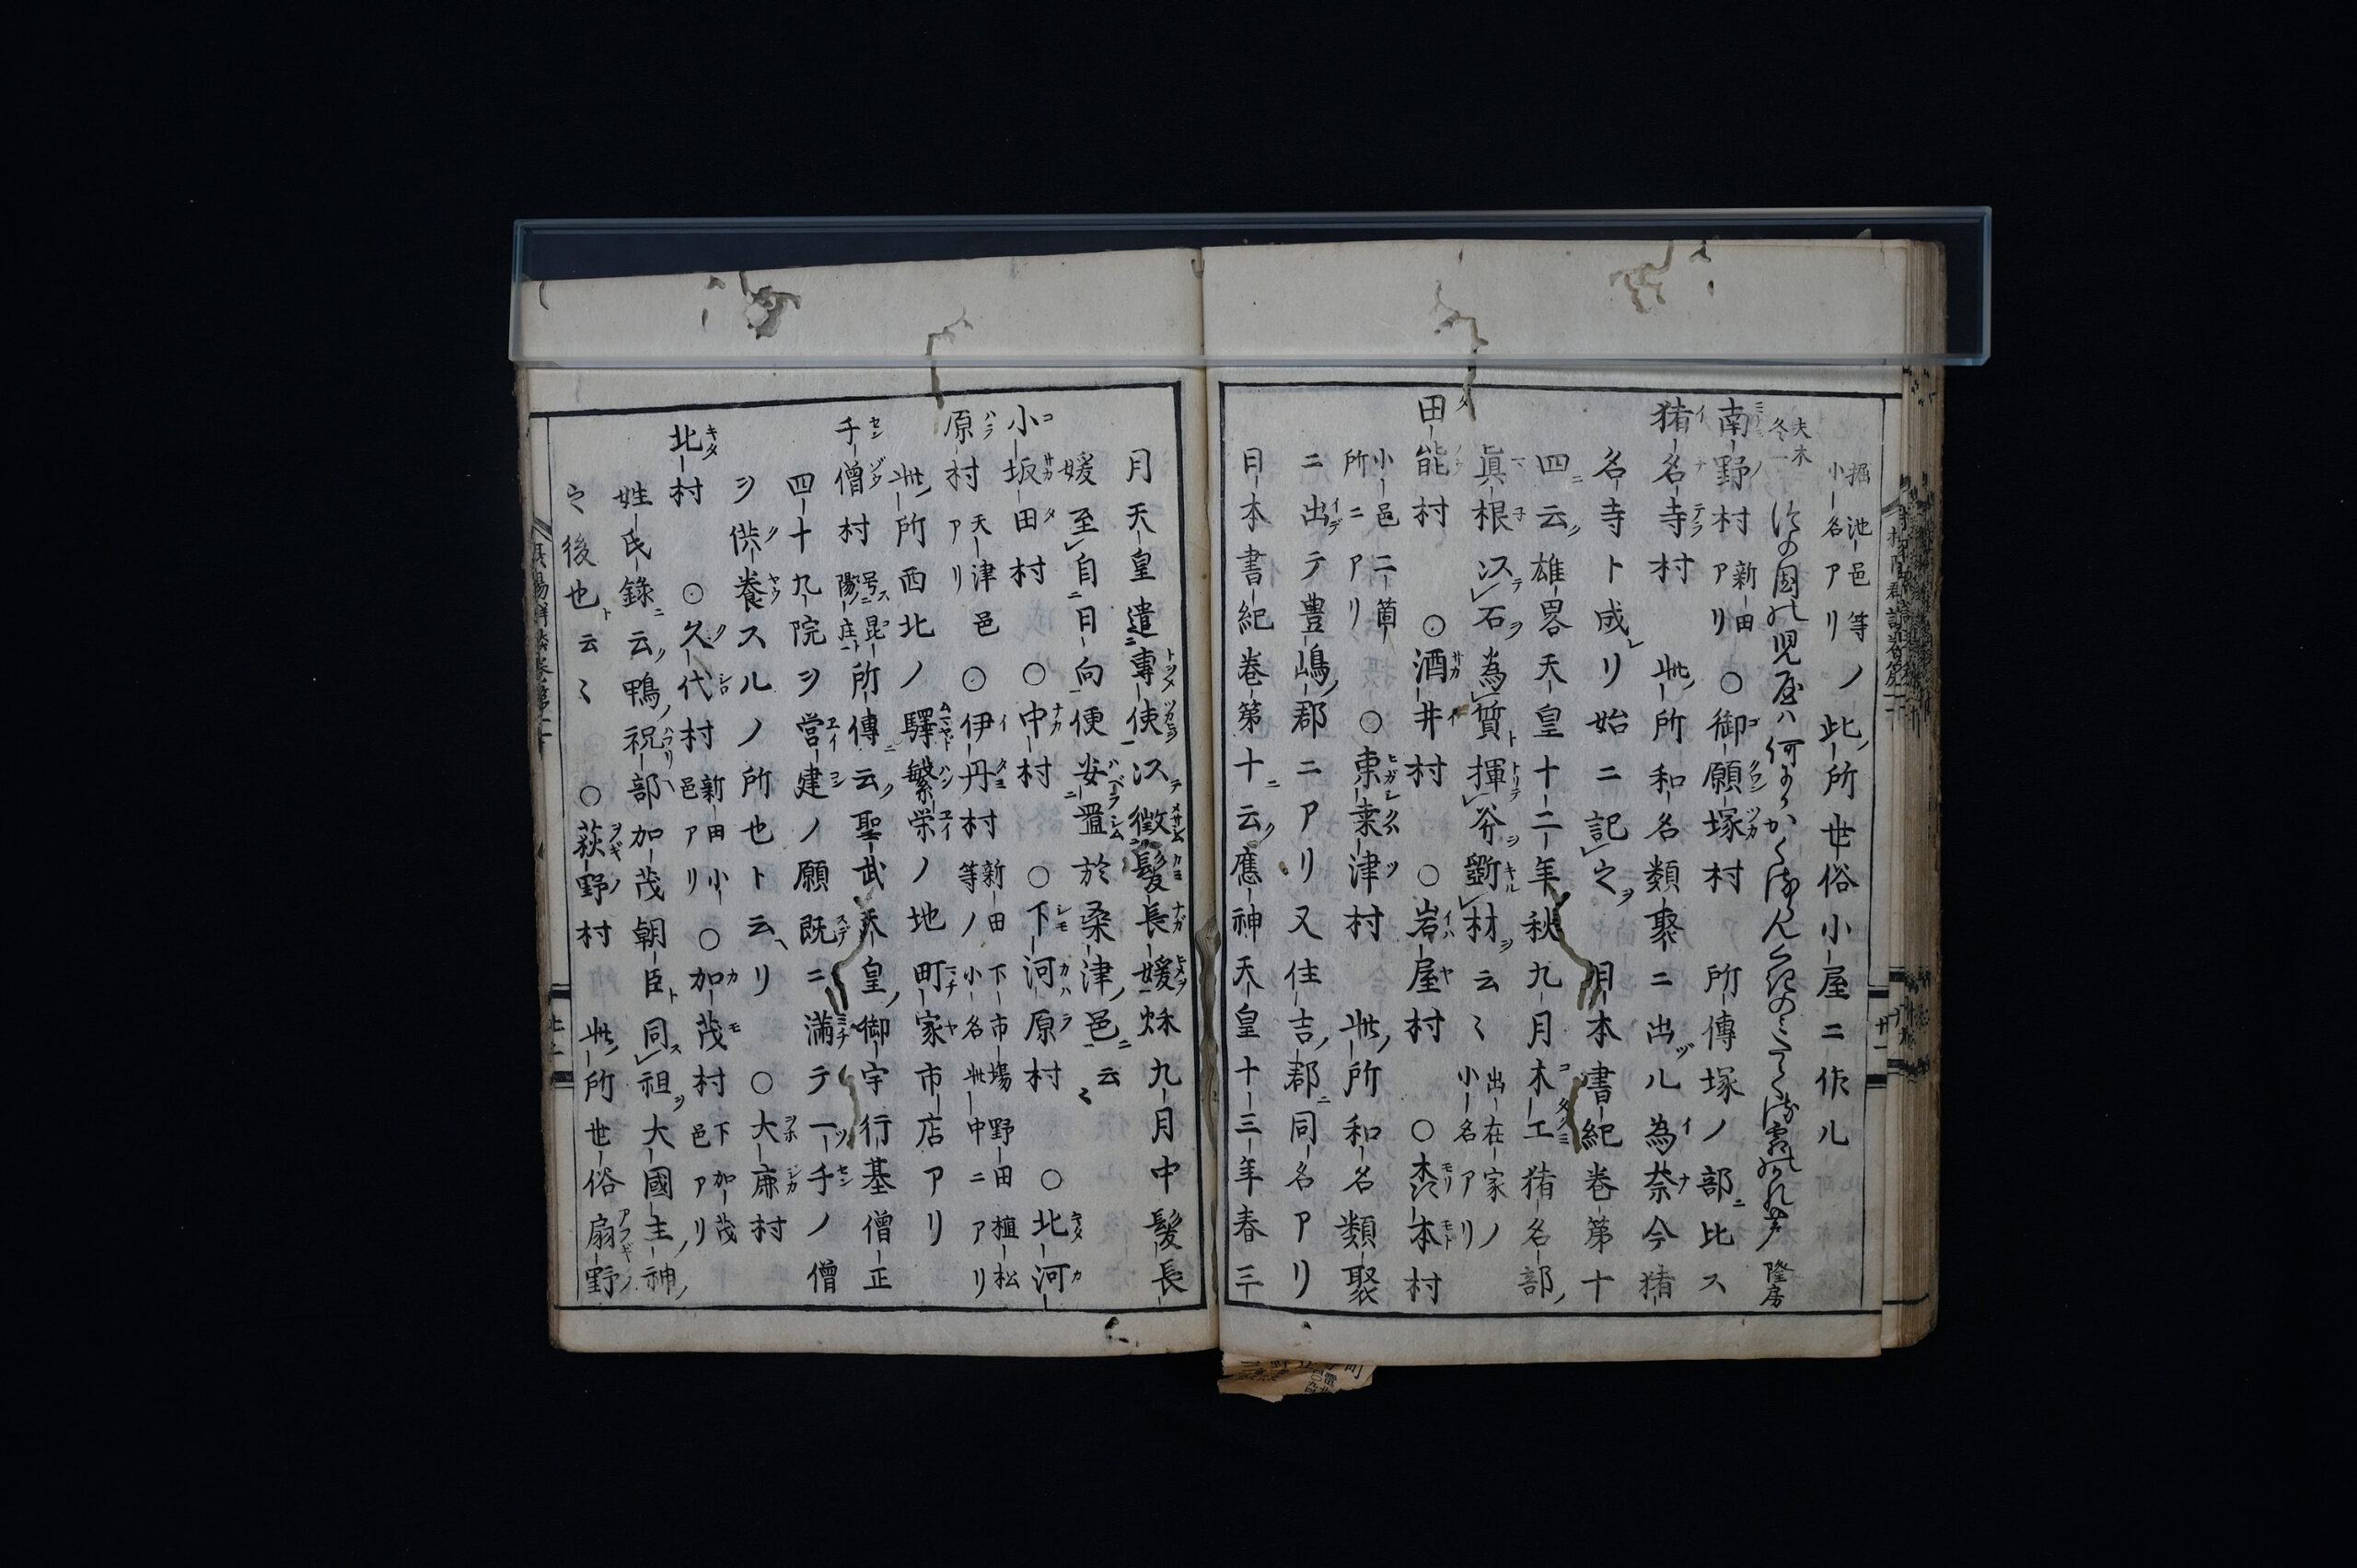 堀池邑等ノ小名アリ此所世俗小屋ニ作ル
夫木冬一
隆房
南野村新田アリ○御願塚村所傳塚ノ部ニ比ス
猪名寺村此所和名類聚ニ出ル為奈今猪
名寺ト成リ始ニ記之日本書紀巻第十
四云雄畧天皇十二年秋九月木工猪名部
眞根以石為質揮斧斵材云〻出在家ノ小名アリ
田能村○酒井村○岩屋村○森本村
小邑二箇所ニアリ○東桒津村此所和名類聚
ニ出テ豊嶋郡ニアリ又住吉郡同名アリ
日本書紀巻第十云應神天皇十三年春三
月天皇遣專使以徴髮長媛秋九月中髮長
媛至自日向便安置於桑津邑云〻
小坂田村○中村○下河原村○北河
原村天津邑アリ○伊丹村新田下市場野田植松等ノ小名此中ニアリ
此所西北ノ驛繁栄ノ地町家市店アリ
千僧村号昆陽庄所傳云聖武天皇御宇行基僧正
四十九院ヲ営建ノ願既ニ満テ一千ノ僧
ヲ供養スルノ所也ト云リ○大鹿村
北村○久代村新田小邑アリ○加茂村下加茂邑アリ
姓氏錄云鴨祝部加茂朝臣同祖大國主神
之後也云〻○荻野村此所世俗扇野